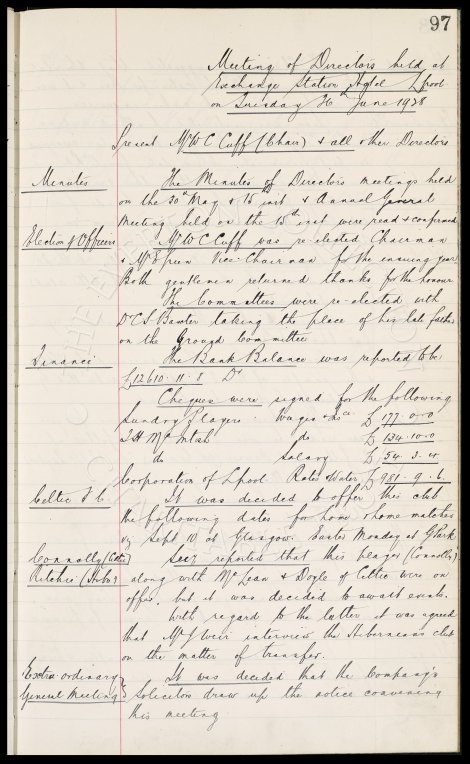 97
Meeting of Directors held at
Exchange Station Hotel L'pool
on Tuesday 26th June 1928
Present Mr W C Cuff (Chair) & all other Directors
Minutes The Minutes of Directors meetings held
on the 30th May & 15th inst & Annual General
Meeting held on the 15th inst were read & confirmed
Election of Officers Mr W C Cuff was re-elected Chairman
& Mr Green Vice-Chairman for the ensuing year
Both gentlemen returned thanks for the honour
The Committees were re-elected with
Dr C S Baxter taking the place of his late father
on the Ground Committee
Finance The Bank Balance was reported to be
£12610. 11. 8 Dr
Cheques were signed for the following
Sundry Players Wages &c £ 177. 0. 0
T H McIntosh do £ 134. 10. 0
do Salary £ 54. 3. 4.
Corporation of L'pool Rates & Water £ 981. 9. 6.
Celtic F C It was decided to offer this club
the following dates for home & home matches
viz Sept 10 at Glasgow. Easter Monday at G Park
Connolly (Celtic) Secy reported that this player (Connolly)
Ritchie (Hibs) along with McLean & Doyle of Celtic were on
offer, but it was decided to await events.
With regard to the latter it was agreed
that Mr J Weir interview the Hibernians club
on the matter of transfer.
Extra-ordinary It was decided that the Company's
General Meeting Solicitors draw up the notice convening
this meeting